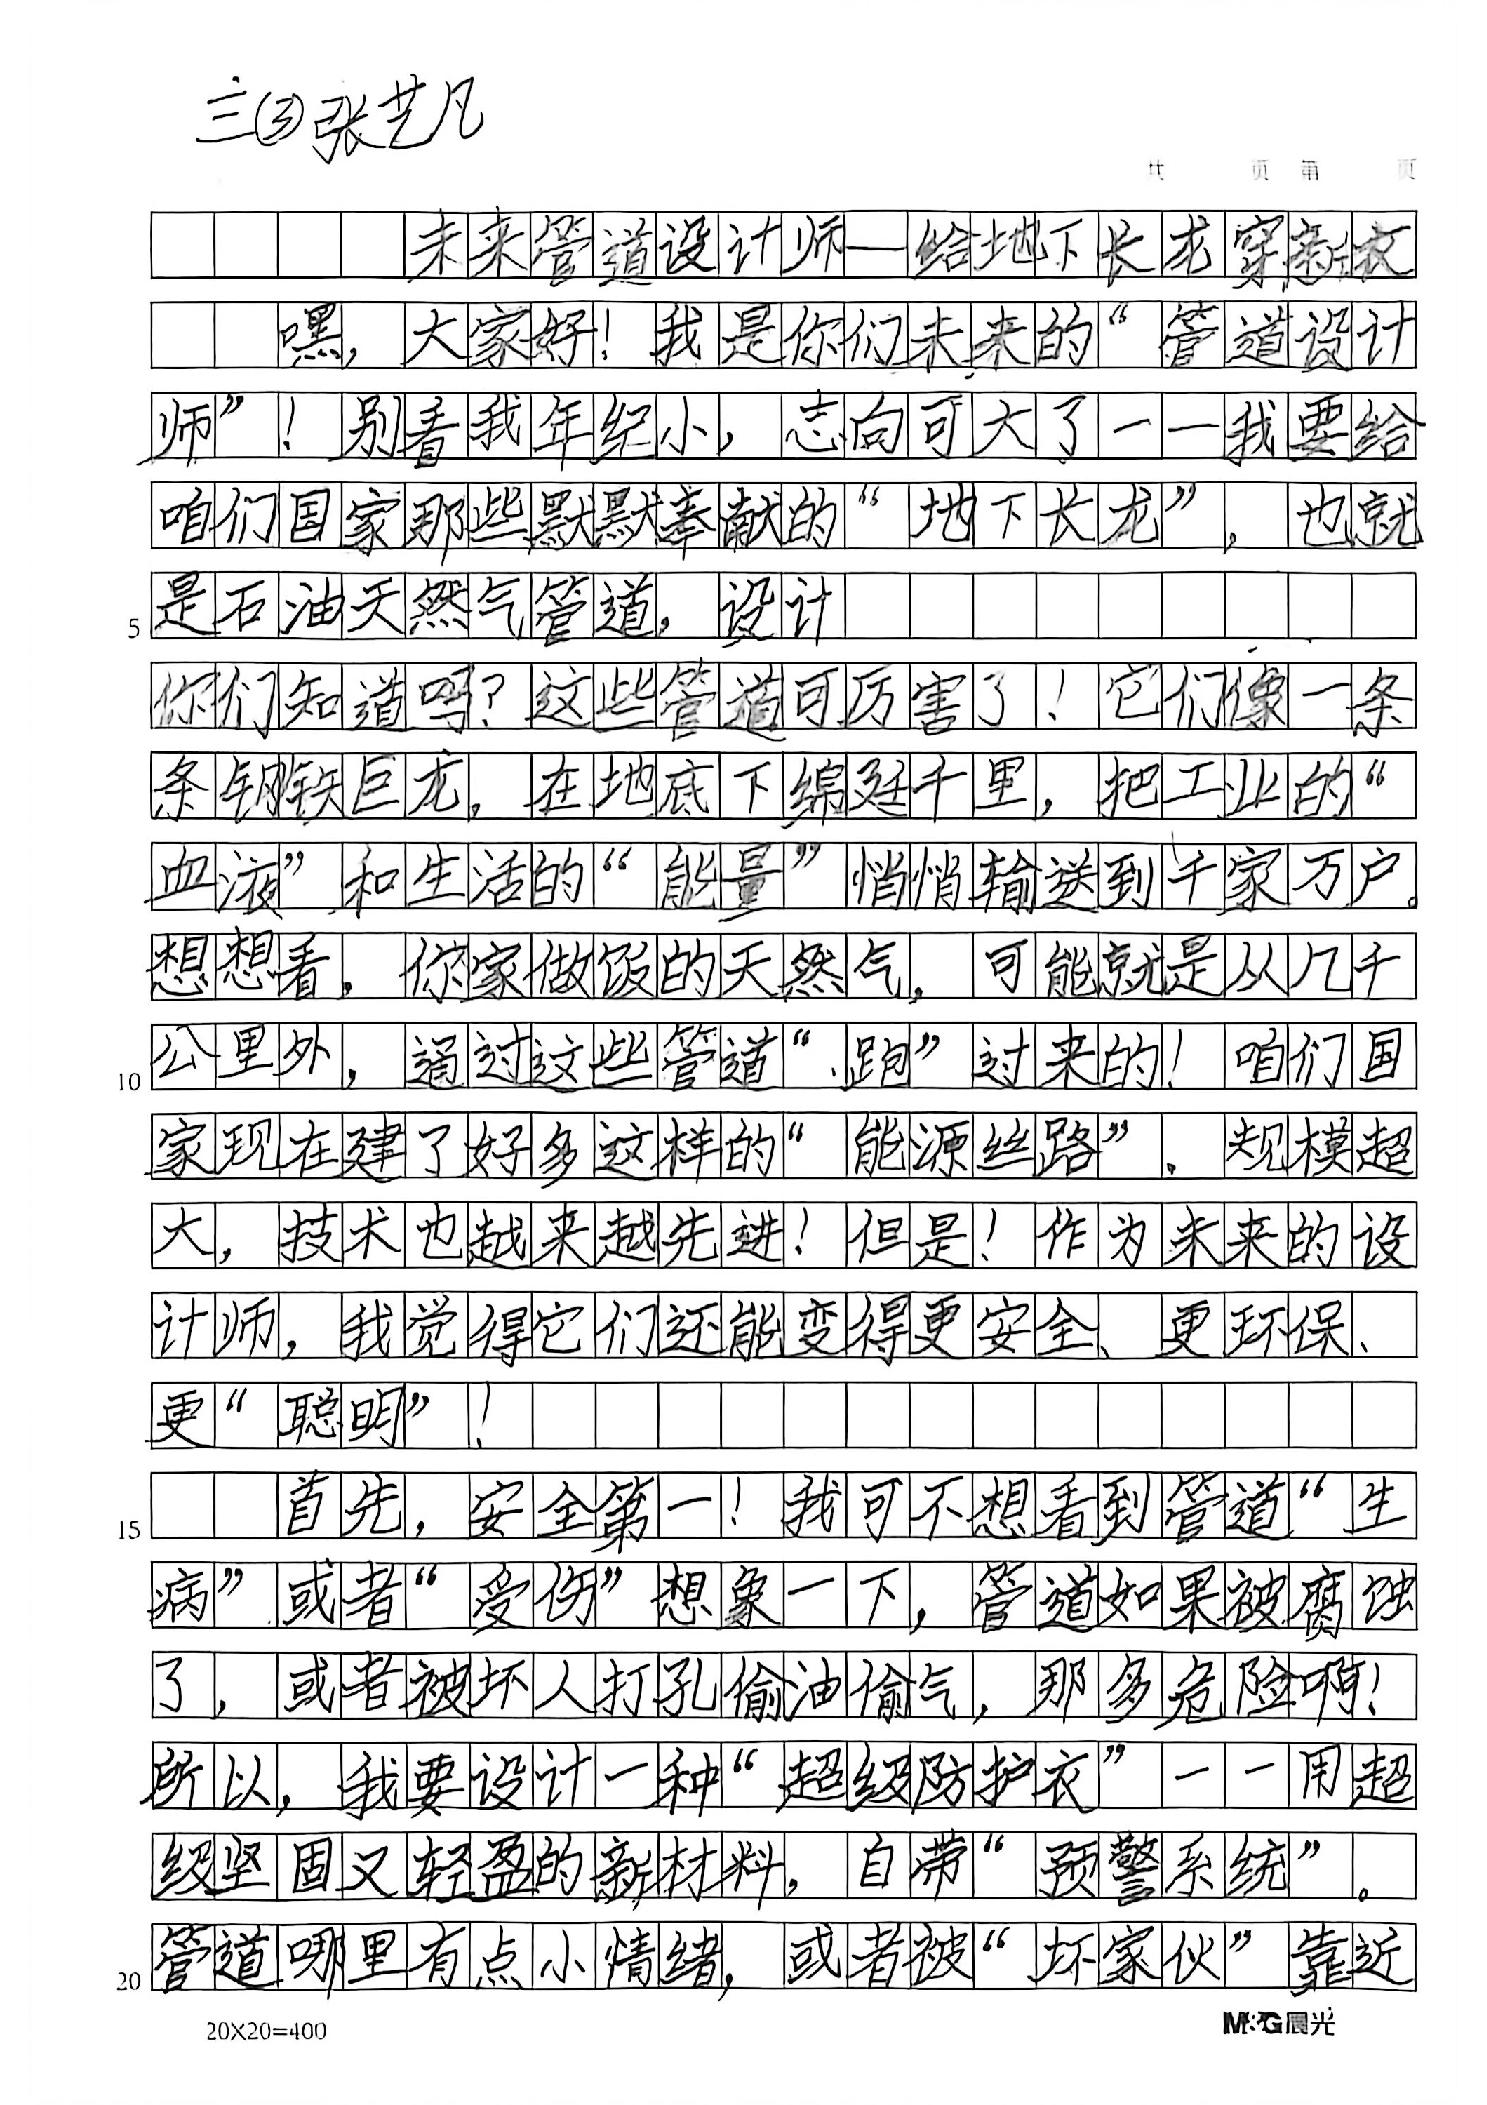 三③张艺凡
共 页 第 页
未来管道设计师—给地下长龙穿新衣
嘿，大家好！我是你们未来的“管道设计
师”！别看我年纪小，志向可大了——我要给
咱们国家那些默默奉献的“地下长龙”，也就
5 是石油天然气管道，设计
你们知道吗？这些管道可厉害了！它们像一条
条钢铁巨龙，在地底下绵延千里，把工业的“
血液”和生活的“能量”悄悄输送到千家万户。
想想看，你家做饭的天然气，可能就是从几千
10 公里外，通过这些管道“跑”过来的！咱们国
家现在建了好多这样的“能源丝路”．规模超
大，技术也越来越先进！但是！作为未来的设
计师，我觉得它们还能变得更安全、更环保、
更“聪明”！
15 首先，安全第一！我可不想看到管道“生
病”或者“受伤”想象一下，管道如果被腐蚀
了，或者被坏人打孔偷油偷气，那多危险啊！
所以，我要设计一种“超级防护衣”——用超
级坚固又轻盈的新材料，自带“预警系统”。
20 管道哪里有点小情绪，或者被“坏家伙”靠近
20X20=400
M&G晨光